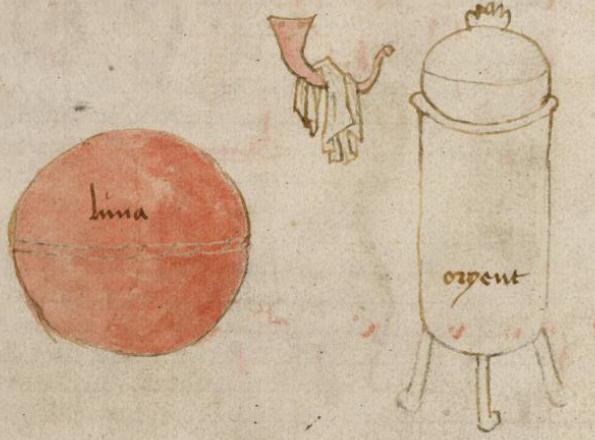 luna
oryent